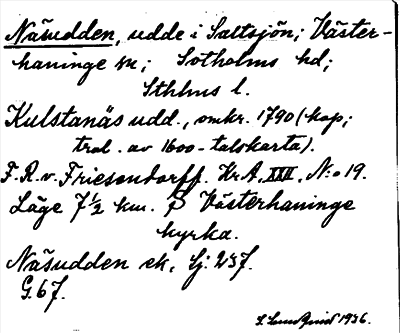 Näsudden, udde i Saltsjön; Väster-
haninge sn; Sotholms hd;
Sthlms l.
Kulstanäs udd., omkr. 1790 (kop;
trol. av 1600-talskarta).
F. R. v. Friesendorff. Kr A. XIII, N:o 19.
Läge 7 1/2 km. Västerhaninge
kyrka.
Näsudden ek.
G. 67.
S. Lundquist 1936.